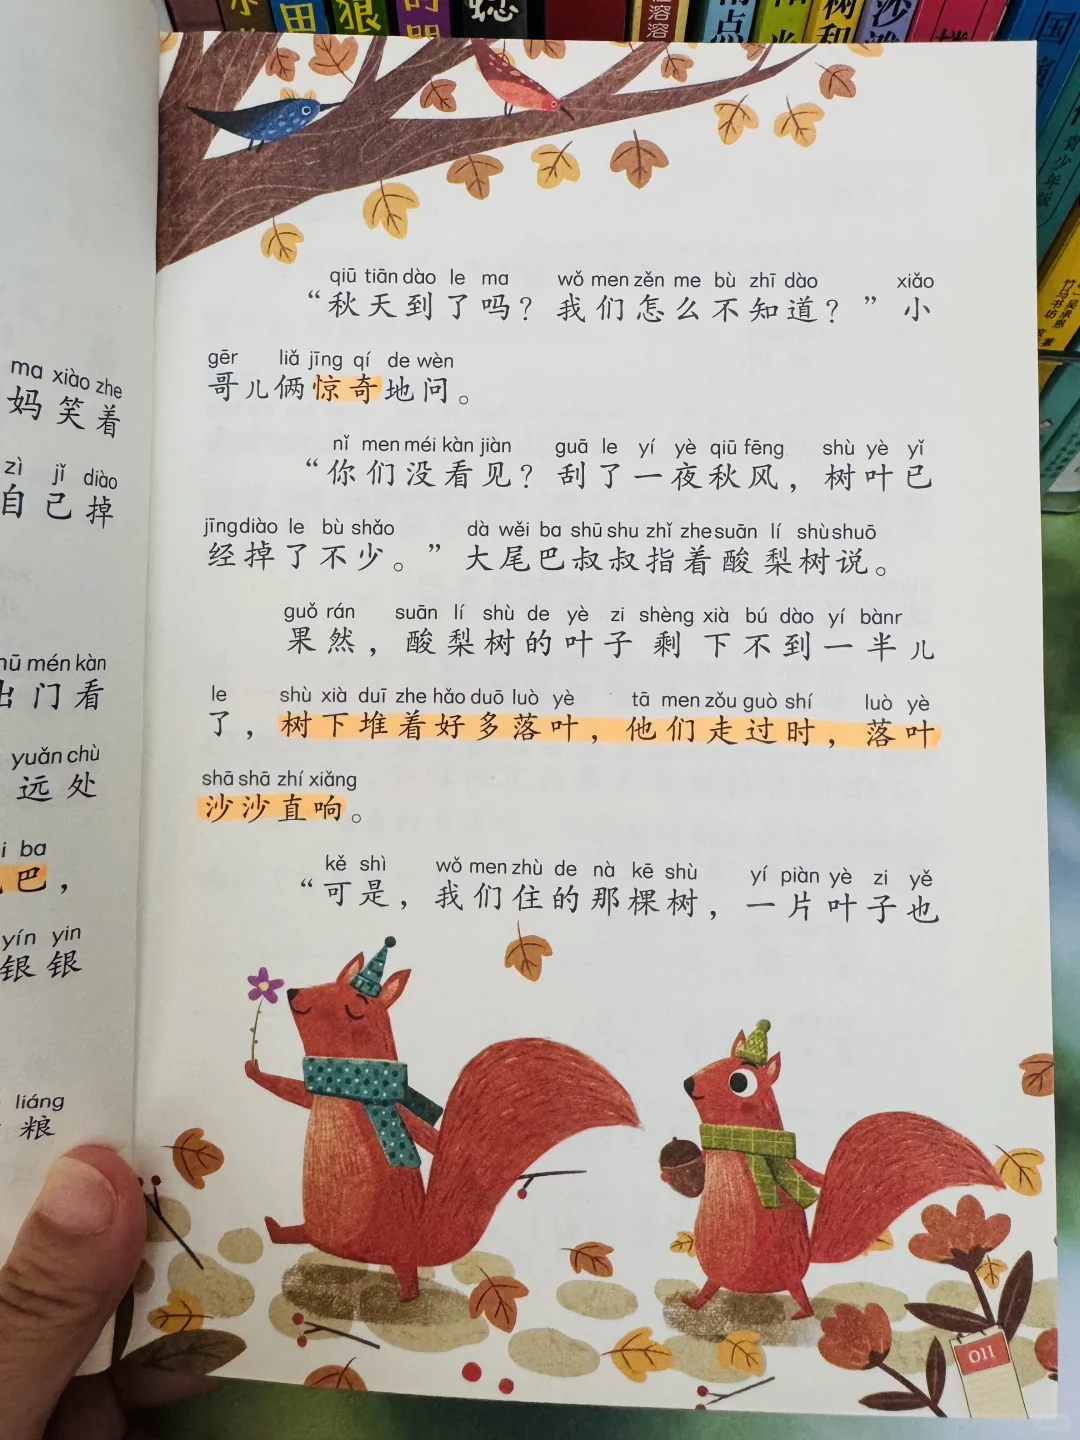 国
青少年版
ma xiào zhe
妈笑着
zì jǐ diào
自己掉
mén kàn
出门看
yuǎn chù
远处
ba
巴，
yín yin
银银
liáng
粮
qiū tiān dào le ma wǒ men zěn me bù zhī dào xiǎo
“秋天到了吗？我们怎么不知道？”小
gēr liǎ jīng qí de wèn
哥儿俩惊奇地问。
nǐ men méi kàn jiàn guā le yí yè qiū fēng shù yè yǐ
“你们没看见？刮了一夜秋风，树叶已
jīng diào le bù shǎo dà wěi ba shū shu zhǐ zhe suān lí shù shuō
经掉了不少。”大尾巴叔叔指着酸梨树说。
guǒ rán suān lí shù de yè zi shèng xià bú dào yí bànr
果然，酸梨树的叶子剩下不到一半儿
le shù xià duī zhe hǎo duō luò yè tā men zǒu guò shí luò yè
了，树下堆着好多落叶，他们走过时，落叶
shā shā zhí xiǎng
沙沙直响。
kě shì wǒ men zhù de nà kē shù yí piàn yè zi yě
“可是，我们住的那棵树，一片叶子也
011